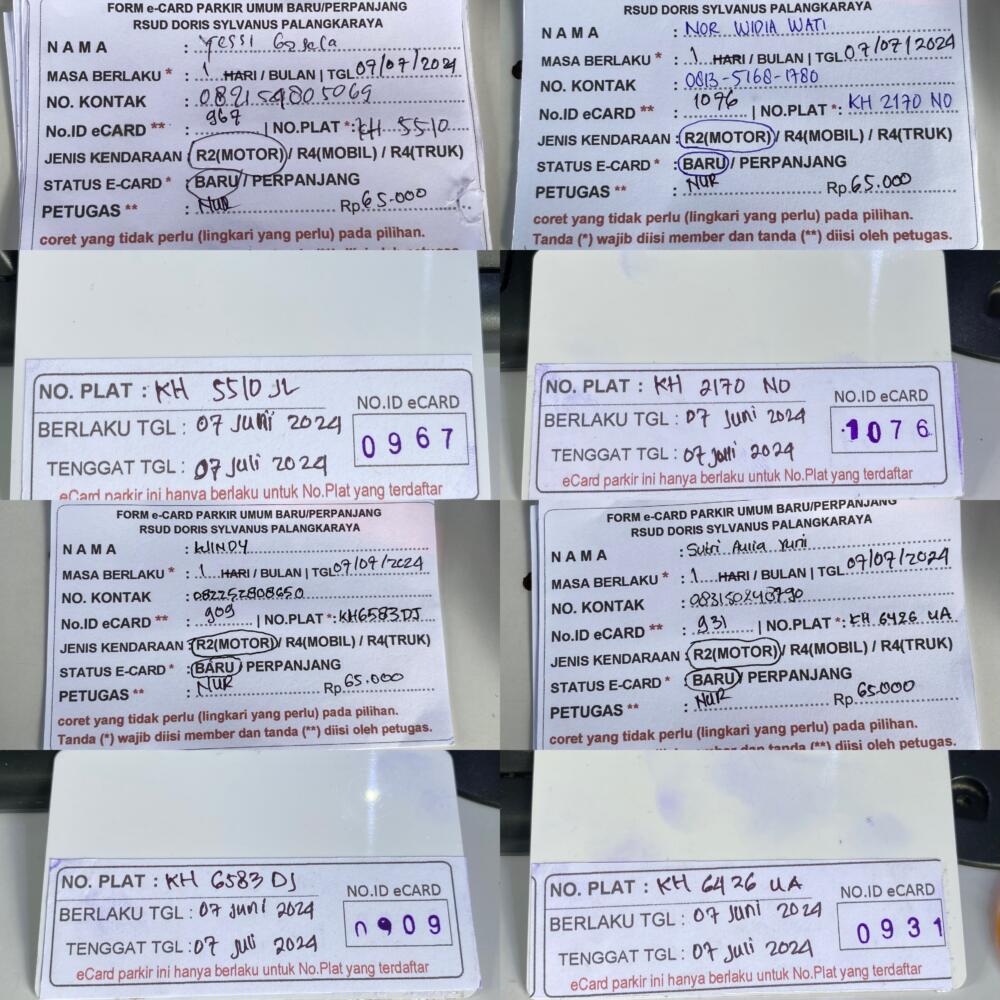 FORM e-CARD PARKIR UMUM BARU/PERPANJANG
RSUD DORIS SYLVANUS PALANGKARAYA
NAMA : Yessi
MASA BERLAKU * : 1 HARI / BULAN | TGL 07/07/2024
NO. KONTAK : 089154805069
No.ID eCARD ** : 967 | NO.PLAT *: KH 5510
JENIS KENDARAAN : R2(MOTOR) / R4(MOBIL) / R4(TRUK)
STATUS E-CARD * : BARU / PERPANJANG
PETUGAS ** : NUR Rp 65.000
coret yang tidak perlu (lingkari yang perlu) pada pilihan.
RSUD DORIS SYLVANUS PALANGKARAYA
NAMA : NOR WIDIA WATI
MASA BERLAKU * : 1 HARI / BULAN | TGL 07/07/2024
NO. KONTAK : 0813-5168-1780
No.ID eCARD ** : 1076 | NO.PLAT *: KH 2170 NO
JENIS KENDARAAN : R2(MOTOR) / R4(MOBIL) / R4(TRUK)
STATUS E-CARD * : BARU / PERPANJANG
PETUGAS ** : NUR Rp. 65.000
coret yang tidak perlu (lingkari yang perlu) pada pilihan.
Tanda (*) wajib diisi member dan tanda (**) diisi oleh petugas.
NO. PLAT : KH 5510 JL
NO.ID eCARD
BERLAKU TGL : 07 Juni 2024
0967
TENGGAT TGL : 07 Juli 2024
eCard parkir ini hanya berlaku untuk No.Plat yang terdaftar
NO. PLAT : KH 2170 NO
NO.ID eCARD
BERLAKU TGL : 07 Juni 2024
1076
TENGGAT TGL : 07 Juli 2024
eCard parkir ini hanya berlaku untuk No.Plat yang terdaftar
FORM e-CARD PARKIR UMUM BARU/PERPANJANG
RSUD DORIS SYLVANUS PALANGKARAYA
NAMA : WINDY
MASA BERLAKU * : 1 HARI / BULAN | TGL 07/07/2024
NO. KONTAK : 082252808650
No.ID eCARD ** : 909 | NO.PLAT *: KH6583DJ
JENIS KENDARAAN : R2(MOTOR) / R4(MOBIL) / R4(TRUK)
STATUS E-CARD * : BARU / PERPANJANG
PETUGAS ** : NUR Rp. 65.000
coret yang tidak perlu (lingkari yang perlu) pada pilihan.
Tanda (*) wajib diisi member dan tanda (**) diisi oleh petugas.
FORM e-CARD PARKIR UMUM BARU/PERPANJANG
RSUD DORIS SYLVANUS PALANGKARAYA
NAMA : Sutri Aulia Yurii
MASA BERLAKU * : 1 HARI / BULAN | TGL 07/07/2024
NO. KONTAK :
No.ID eCARD ** : 931 | NO.PLAT *: KH 6426 UA
JENIS KENDARAAN : R2(MOTOR) / R4(MOBIL) / R4(TRUK)
STATUS E-CARD * : BARU / PERPANJANG
PETUGAS ** : NUR Rp. 65.000
coret yang tidak perlu (lingkari yang perlu) pada pilihan.
member dan tanda (**) diisi oleh petugas.
NO. PLAT : KH 6583 DJ
NO.ID eCARD
BERLAKU TGL : 07 Juni 2024
0909
TENGGAT TGL : 07 Juli 2024
eCard parkir ini hanya berlaku untuk No.Plat yang terdaftar
NO. PLAT : KH 6426 UA
NO.ID eCARD
BERLAKU TGL : 07 Juni 2024
0931
TENGGAT TGL : 07 Juli 2024
eCard parkir ini hanya berlaku untuk No.Plat yang terdaftar